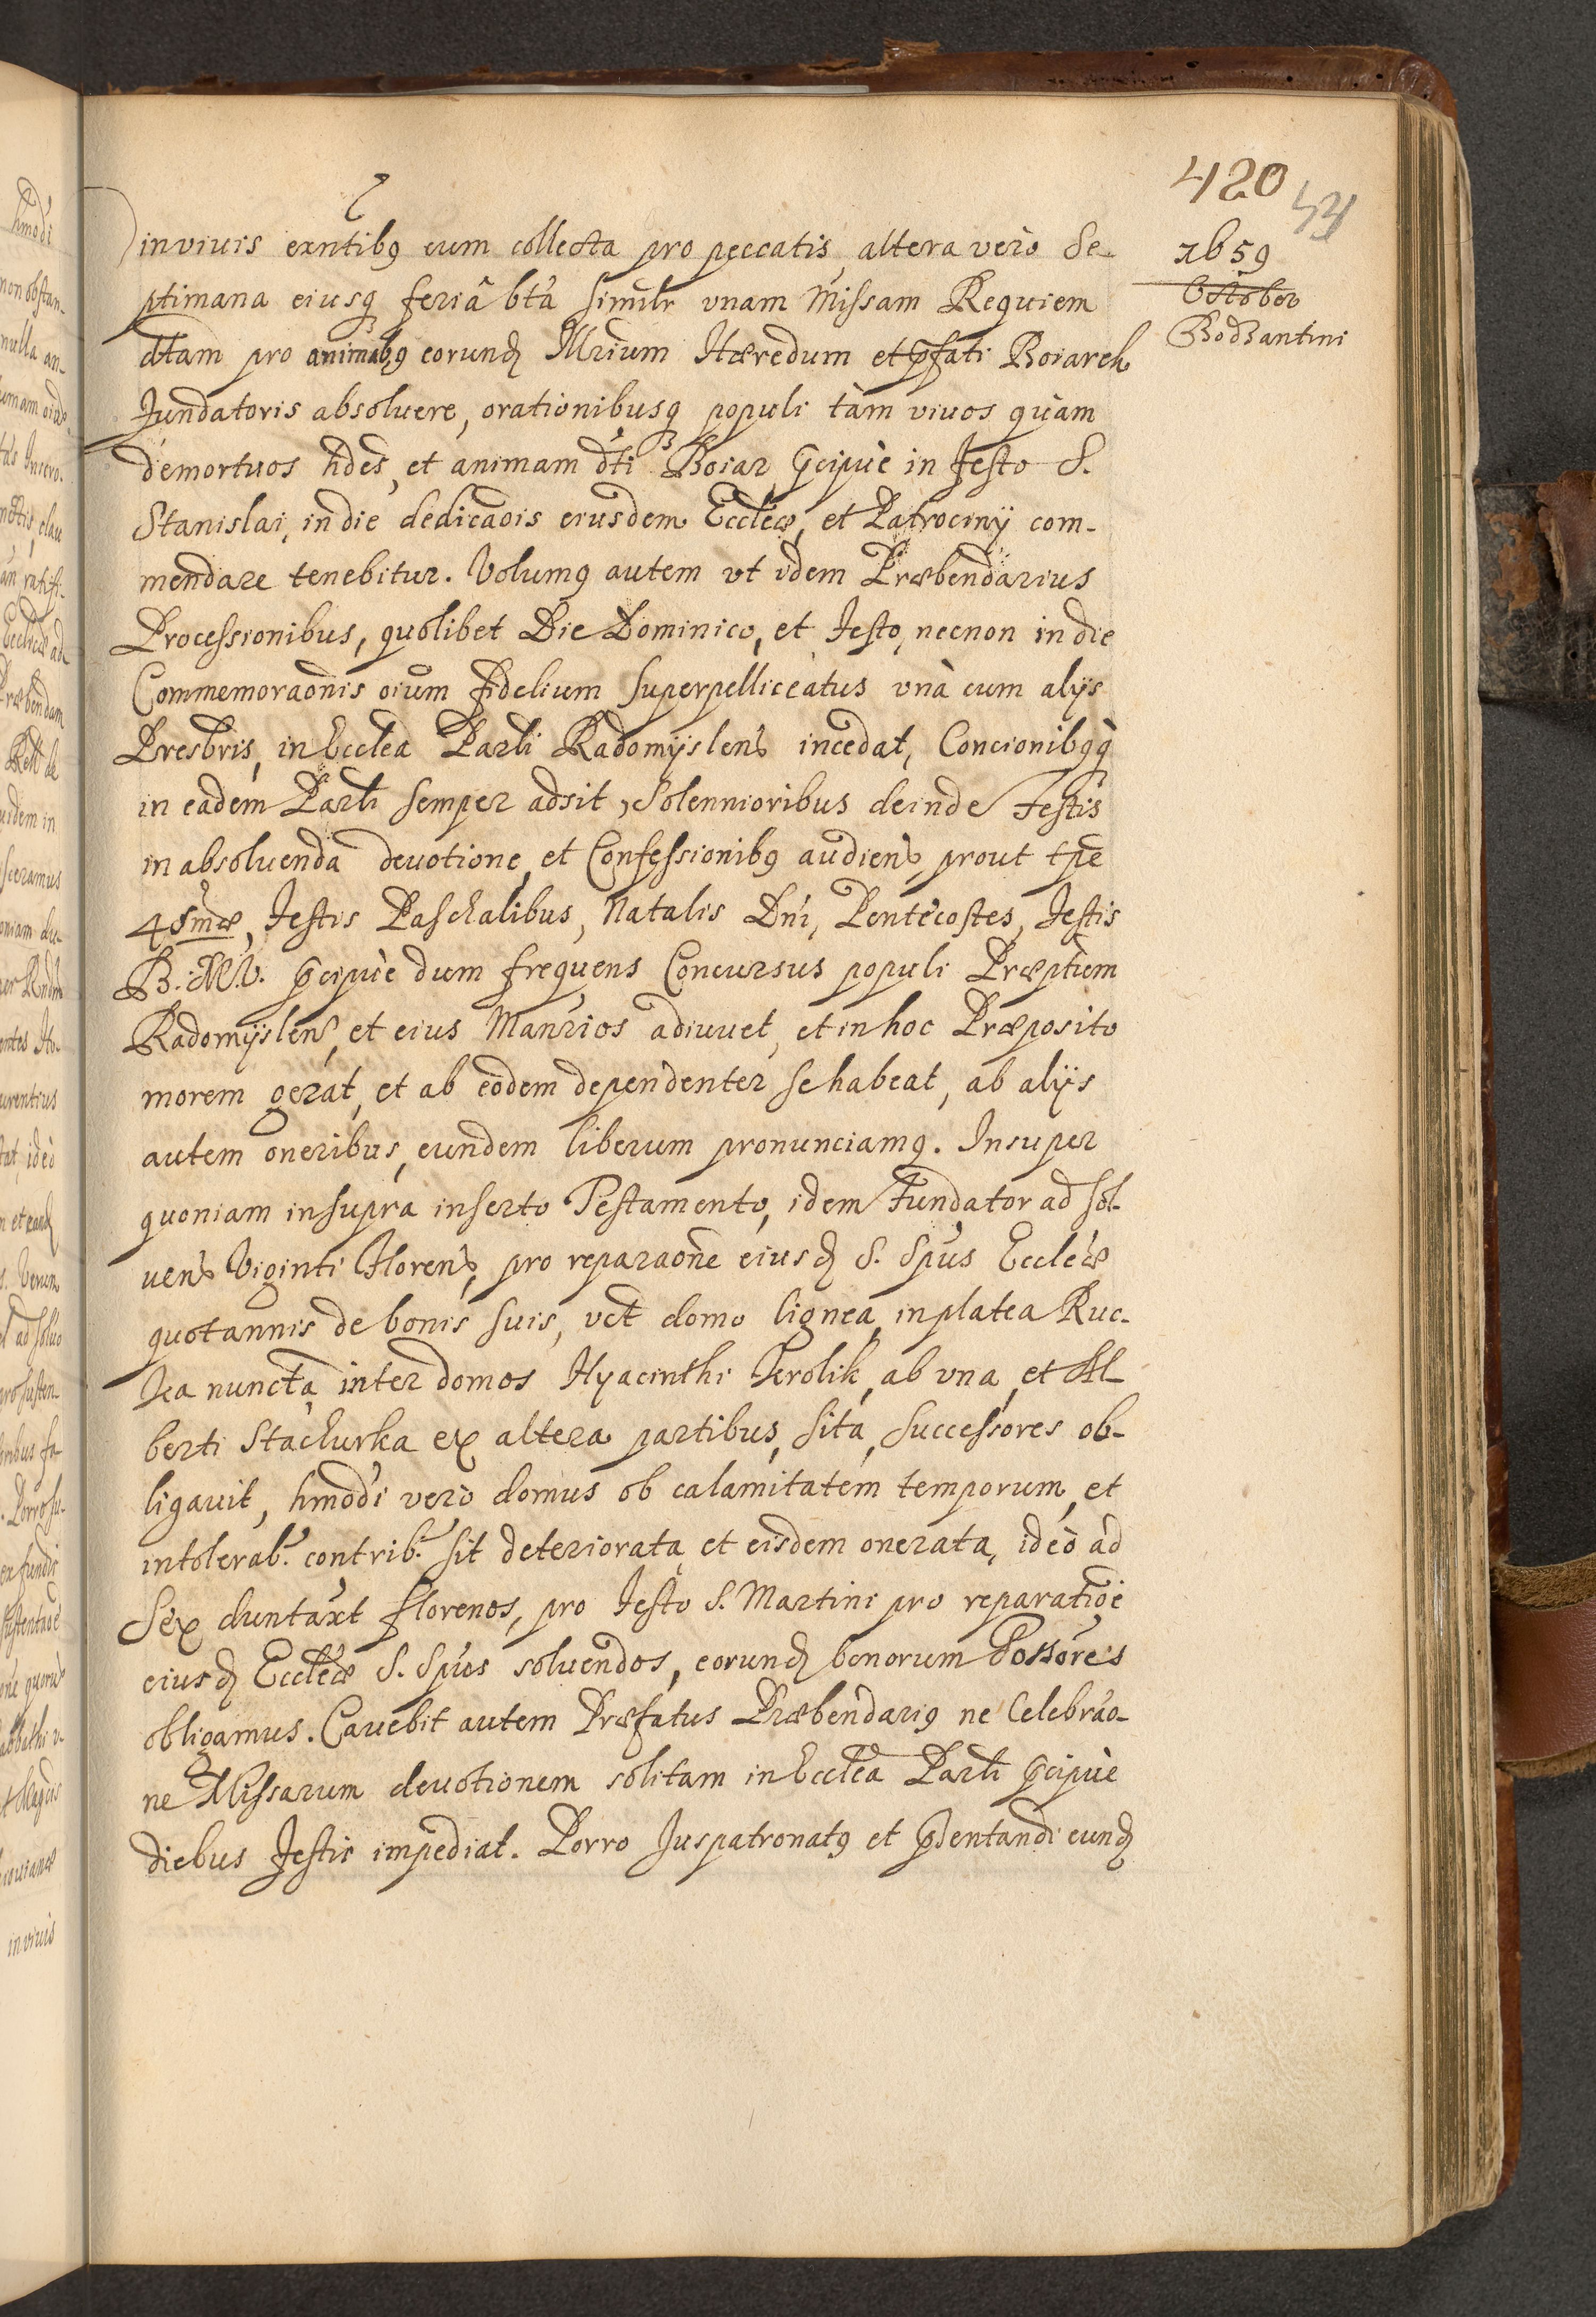 420
1659
October
Bodzantini
in viuis exntibq cum collecta pro peccatis, altera verò Se-
ptimana eiusq feriâ bta similr vnam Missam Requiem
dtam pro animabq eorund Illrium Hæredum et pfati Boiarek
Fundatoris absoluere, orationibusq populi tàm viuos quàm
demortuos hdes, et animam dti Boiar pcipuè in Festo S.
Stanislai, in die dedicaois eiusdem Eccleæ, et Patrocinij com-
mendare tenebitur. Volumq autem vt idem Præbendarius
Processionibus, quolibet Die Dominico, et Festo, necnon in die
Commemoraonis oium fidelium superpelliceatus vnà cum alijs
Presbris, in Ecclea Parli Radomÿslens incedat, Concionibqq
in eadem Parli semper adsit, Solennioribus deinde Festis
in absoluenda deuotione, et Confessionibq audiens, prout tpe
40smæ, Festis Paschalibus, Natalis Dni, Pentecostes, Festis
B. M. V. pcipuè dum frequens Concursus populi Præptum
Radomÿslens, et eius Manrios adiuuet, et in hoc Præposito
morem gerat, et ab eodem dependenter se habeat, ab alijs
autem oneribus, eundem liberum pronunciamq. Insuper
quoniam in supra inserto Testamento, idem Fundator ad sol-
uens Viginti Florens, pro reparaone eiusd S. Spus Eccleæ
quotannis de bonis suis, vct domo lignea, in platea Ruc-
ka nuncta inter domos Hyacinthi Krolik, ab vna, et Al-
berti Stachurka ex altera partibus, sita, successores ob-
ligauit, hmodi verò domus ob calamitatem temporum, et
intolerab. contrib. sit deteriorata, et eisdem onerata, ideò ad
Sex duntaxt florenos, pro Festo S. Martini pro reparatioe
eiusd Eccleæ S. Spus soluendos, eorund bonorum Possores
obligamus. Cauebit autem Præfatus Præbendariq ne Celebrao-
ne Missarum deuotionem solitam in Ecclea Parli pcipuè
diebus Festis impediat. Porro Juspatronatq et pntandi eund